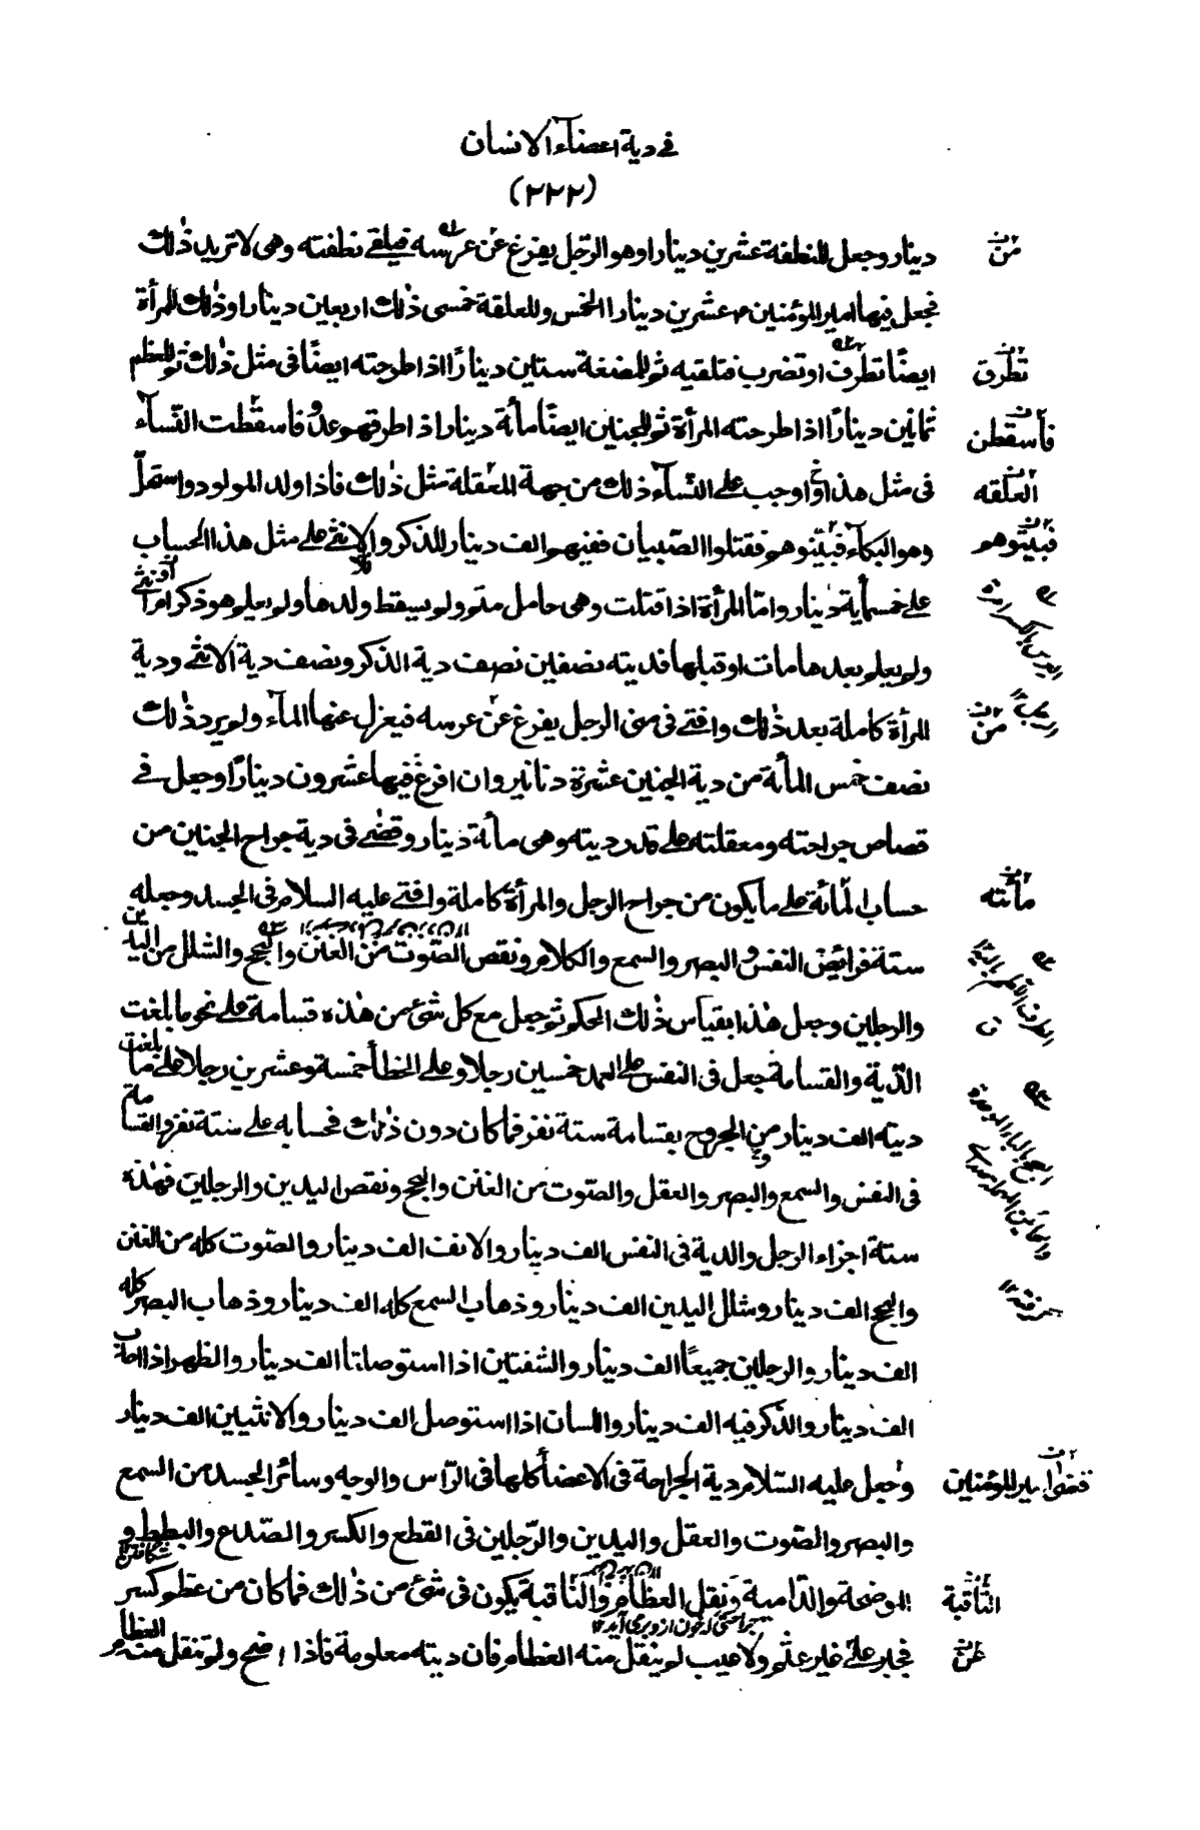 في دية اعضآء الانسان
(٢٢٢)
دينار وجعل للنطفة عشرين دينارا وهو الرجل يفرغ عن عرسه فيلقي نطفته وهي لا تريد ذلك
فجعل فيها امير المؤمنين ع عشرين دينارا الخمس وللعلقة خمسي ذلك اربعين دينارا وذلك للمرأة
ايضًا تطرق او تضرب فتلقيه ثم للمضغة ستين دينارًا اذا طرحته ايضًا في مثل ذلك ثم للعظم
ثمانين دينارًا اذا طرحته المرأة ثم للجنين ايضًا مأة دينار اذا طرقهم عدو فاسقطت النسآء
في مثل هذا او اوجب على النسآء ذلك من جهة المعقلة مثل ذلك فاذا ولد المولود واستهل
وهو البكآء فبيتوهم فقتلوا الصبيان ففيهم الف دينار للذكر والانثى على مثل هذا الحساب
على خمسمأية دينار واما المرأة اذا قتلت وهي حامل متم ولم يسقط ولدها ولم يعلم هو ذكر ام انثى
ولم يعلم بعدها مات او قبلها فديته نصفين نصف دية الذكر ونصف دية الانثى ودية
المرأة كاملة بعد ذلك وافتى في منى الرجل يفرغ عن عرسه فيعزل عنها المآء ولم يرد ذلك
نصف خمس المأة من دية الجنين عشرة دنانير وان افرغ فيها عشرون دينارًا وجعل في
قصاص جراحته ومعقلته على قدر ديته وهي مأة دينار وقضى في دية جراح الجنين من
حساب المأئة على ما يكون من جراح الرجل والمرأة كاملة وافتى عليه السلام في الجسد وجعله
ستة فرائض النفس والبصر والسمع والكلام ونقص الصوت من الغنن والبحح والشلل من اليدين
والرجلين وجعل هذا بقياس ذلك الحكم ثم جعل مع كل شئ من هذه قسامة على نحو ما بلغت
الدية والقسامة جعل في النفس على العمد خمسين رجلا وعلى الخطأ خمسة وعشرين رجلا على ما بلغت
ديته الف دينار من الجروح بقسامة ستة نفر فما كان دون ذلك فحسابه على ستة نفر والقسامة
في النفس والسمع والبصر والعقل والصوت من الغنن والبحح ونقص اليدين والرجلين فهذه
ستة اجزاء الرجل والدية في النفس الف دينار والانف الف دينار والصوت كله من الغنن
والبحح الف دينار وشلل اليدين الف دينار وذهاب السمع كله الف دينار وذهاب البصر كله
الف دينار والرجلين جميعًا الف دينار والشفتين اذا استوصلتا الف دينار والظهر اذا احدب
الف دينار والذكر فيه الف دينار واللسان اذا استوصل الف دينار والانثيين الف دينار
وجعل عليه السلام دية الجراحة في الاعضآء كلها في الرأس والوجه وسائر الجسد من السمع
والبصر والصوت والعقل واليدين والرجلين في القطع والكسر والصدع والبطط و
الموضحة والدامية ونقل العظام والناقبة يكون في شئ من ذلك فما كان من عظم كسر
فجبر على غير عثم ولا عيب لم ينقل منه العظام فان ديته معلومة فاذا اوضح ولم تنقل منه العظام
من
تطرق
فأسقطن
العلقه
فبيتوهم
من
مأته
فقضى امير المؤمنين
الثاقبة
عن